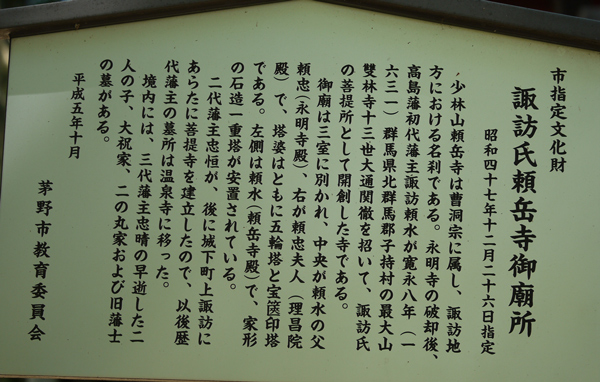 市指定文化財
諏訪氏頼岳寺御廟所
昭和四十七年十二月二十六日指定
少林山頼岳寺は曹洞宗に属し、諏訪地
方における名刹である。永明寺の破却後、
高島藩初代藩主諏訪頼水が寛永八年（一
六三一）群馬県北群馬郡子持村の最大山
雙林寺十三世大通関徹を招いて、諏訪氏
の菩提所として開創した寺である。
御廟は三室に別かれ、中央が頼水の父
頼忠（永明寺殿）、右が頼忠夫人（理昌院
殿）で、塔婆はともに五輪塔と宝篋印塔
である。左側は頼水（頼岳寺殿）で、家形
の石造一重塔が安置されている。
二代藩主忠恒が、後に城下町上諏訪に
あらたに菩提寺を建立したので、以後歴
代藩主の墓所は温泉寺に移った。
境内には、三代藩主忠晴の早逝した二
人の子、大祝家、二の丸家および旧藩士
の墓がある。
平成五年十月
茅野市教育委員会